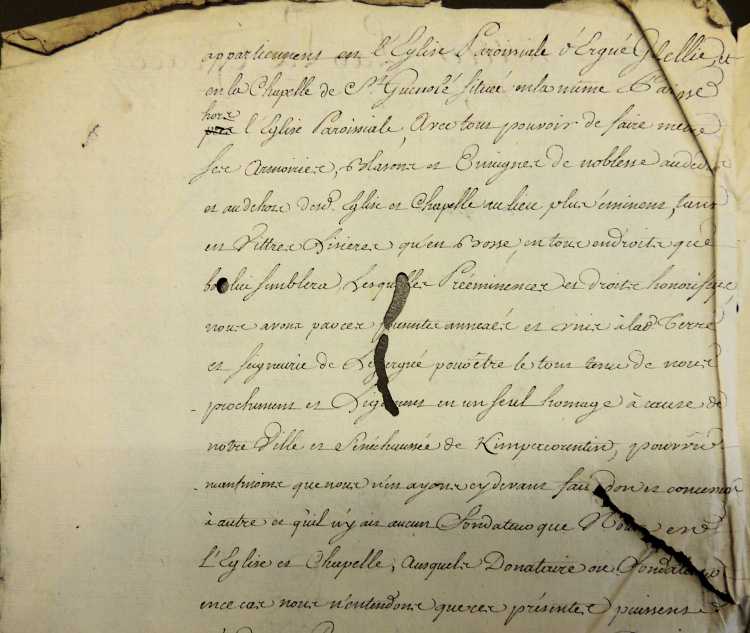 appartiennens en l'Eglise Paroissiale d'Ergué Gbellie, et
en la Chapelle de St Guenolé située en la même Paroisse
hors
l'Eglise Paroissiale, Avec tous pouvoir de faire mettre
ses Armoiries, Blasons et Enseignes de noblesse au dedans
et au dehors desd. Eglise et Chapelle au lieu plus éminens, tans
en Vittres Lisieres qu'en Bosse en tous endroits que
bon lui semblera, Lesquelles Prééminences et droits honorifiques
nous avons par ces presentes annexés et unis à lad. Terre
et seigneurie de Lezergué pour être le tout tenu de nous
prochemens et Ligemens en un seul homage à cause de
notre Ville et Sénéchaussée de Kimpercorentin, pourvû
neantmoins que nous n'en ayons cy devans fait don et concession
à autre et qu'il n'y ais aucun Fondateur que Nous esd.
l'Eglise et Chapelle, Ausquels Donataire ou Fondateur
en ce cas nous n'entendons que ces présentes puissens